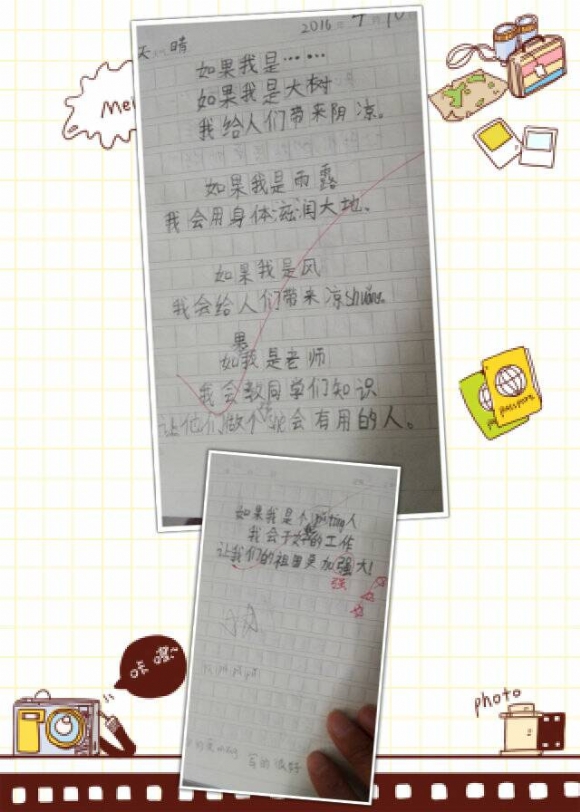 2016年9月10
天 晴
如果我是……
如果我是大树
我给人们带来阴凉。
如果我是雨露
我会用身体滋润大地、
如果我是风
我会给人们带来凉shuǎng。
如果我是老师
我会教同学们知识
让他们做个shè会有用的人。
如果我是个pǔtōng人
我会干好的工作
让我们的祖国更加强大!
强
咔嚓~
passport
photo
写的很好